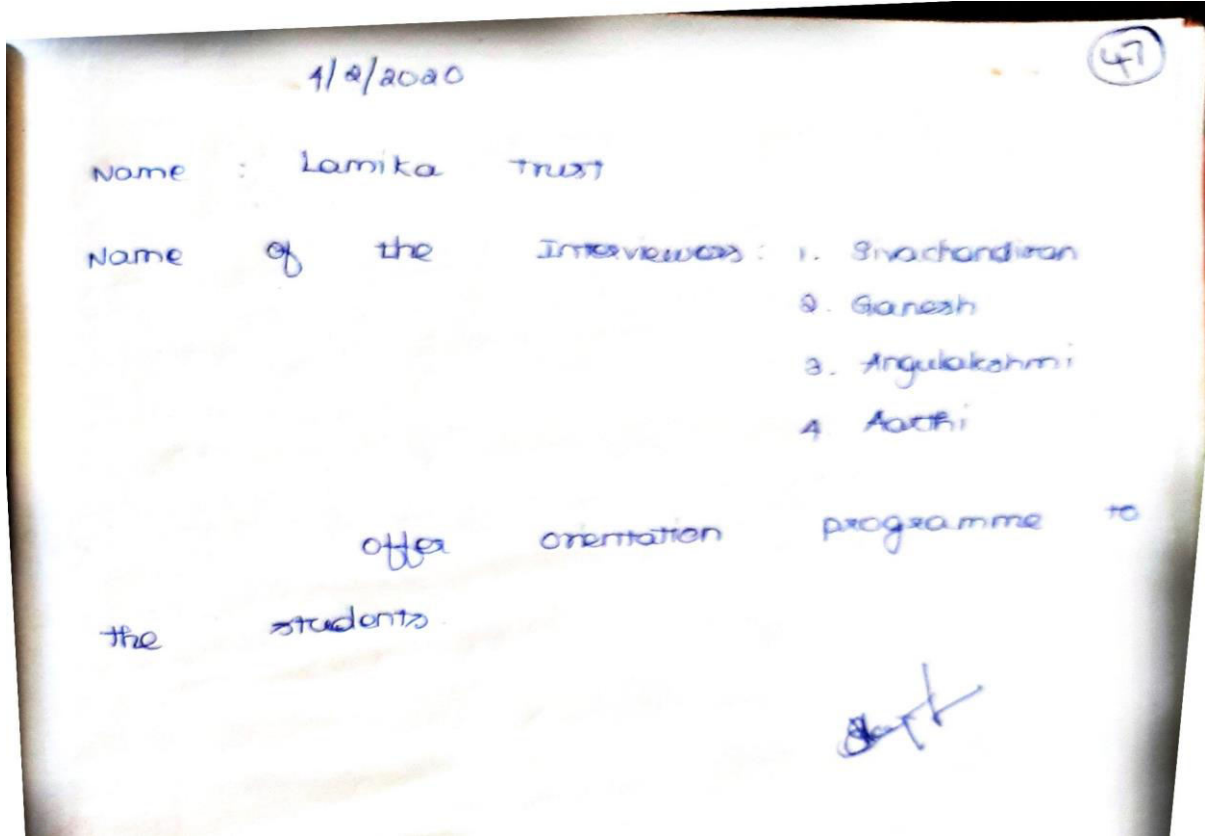 47
4/2/2020
Name : Lamika Trust
Name of the Interviewers: 1. Sivachandiran
2. Ganesh
3. Angulakshmi
4 Aarthi
offer orientation programme to
the students.